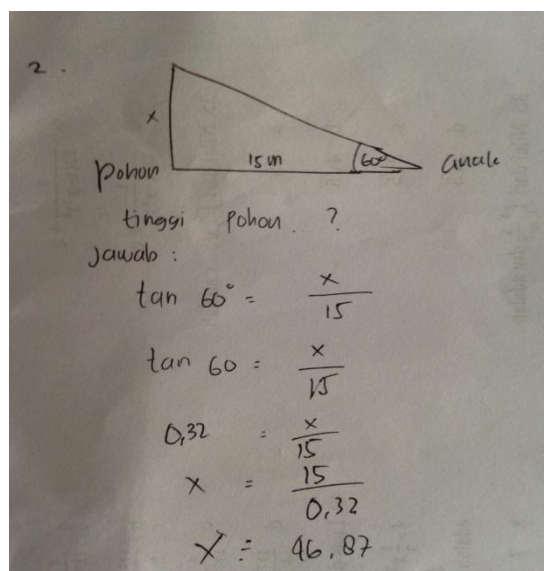 2.
x
15 m
60°
Pohon
anak
tinggi pohon . ?
Jawab :
tan 60° = x/15
tan 60 = x/15
0,32 = x/15
x = 15/0,32
x = 46,87